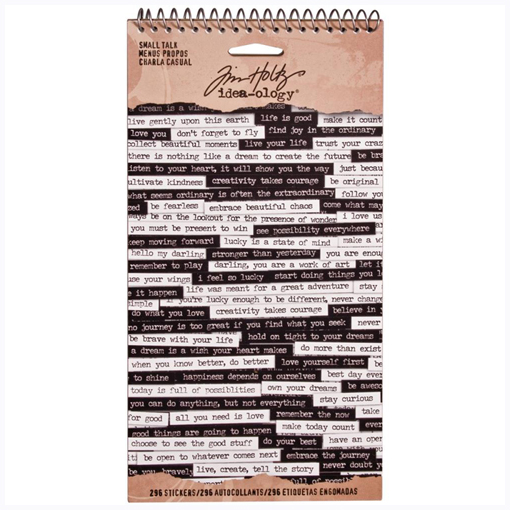 SMALL TALK
MENUS PROPOS
CHARLA CASUAL
Tim Holtz
idea-ology®
dream is a wish makes
live gently upon this earth life is good make it count
love you don't forget to fly find joy in the ordinary
collect beautiful moments live your life trust your craz
there is nothing like a dream to create the future be br
listen to your heart, it will show you the way just becau
ultivate kindness creativity takes courage be original
what seems ordinary is often the extraordinary follow yo
god be fearless embrace beautiful chaos come what may
ways be on the lookout for the presence of wonder i love us
you must be present to win see possibility everywhere
keep moving forward lucky is a state of mind make a w
hello my darling stronger than yesterday you are enou
remember to play darling, you are a work of art let i
use your wings i feel so lucky start doing things you lo
e it happen life was meant for a great adventure stay
simple if you're lucky enough to be different, never change
do what you love creativity takes courage believe in
no journey is too great if you find what you seek never
be brave with your life hold on tight to your dreams
a dream is a wish your heart makes do more than exist
when you know better, do better love yourself first be
to shine happiness depends on ourselves best day ever
today is full of possiblities own your dreams be aweso
you can do anything, but not everything stay curious
for good all you need is love remember the now take
good things are going to happen make today count ever
choose to see the good stuff do your best have an open
it be open to whatever comes next embrace the journey
be you bravely live, create, tell the story never doubt y
full of possi
296 STICKERS/296 AUTOCOLLANTS/296 ETIQUETAS ENGOMADAS